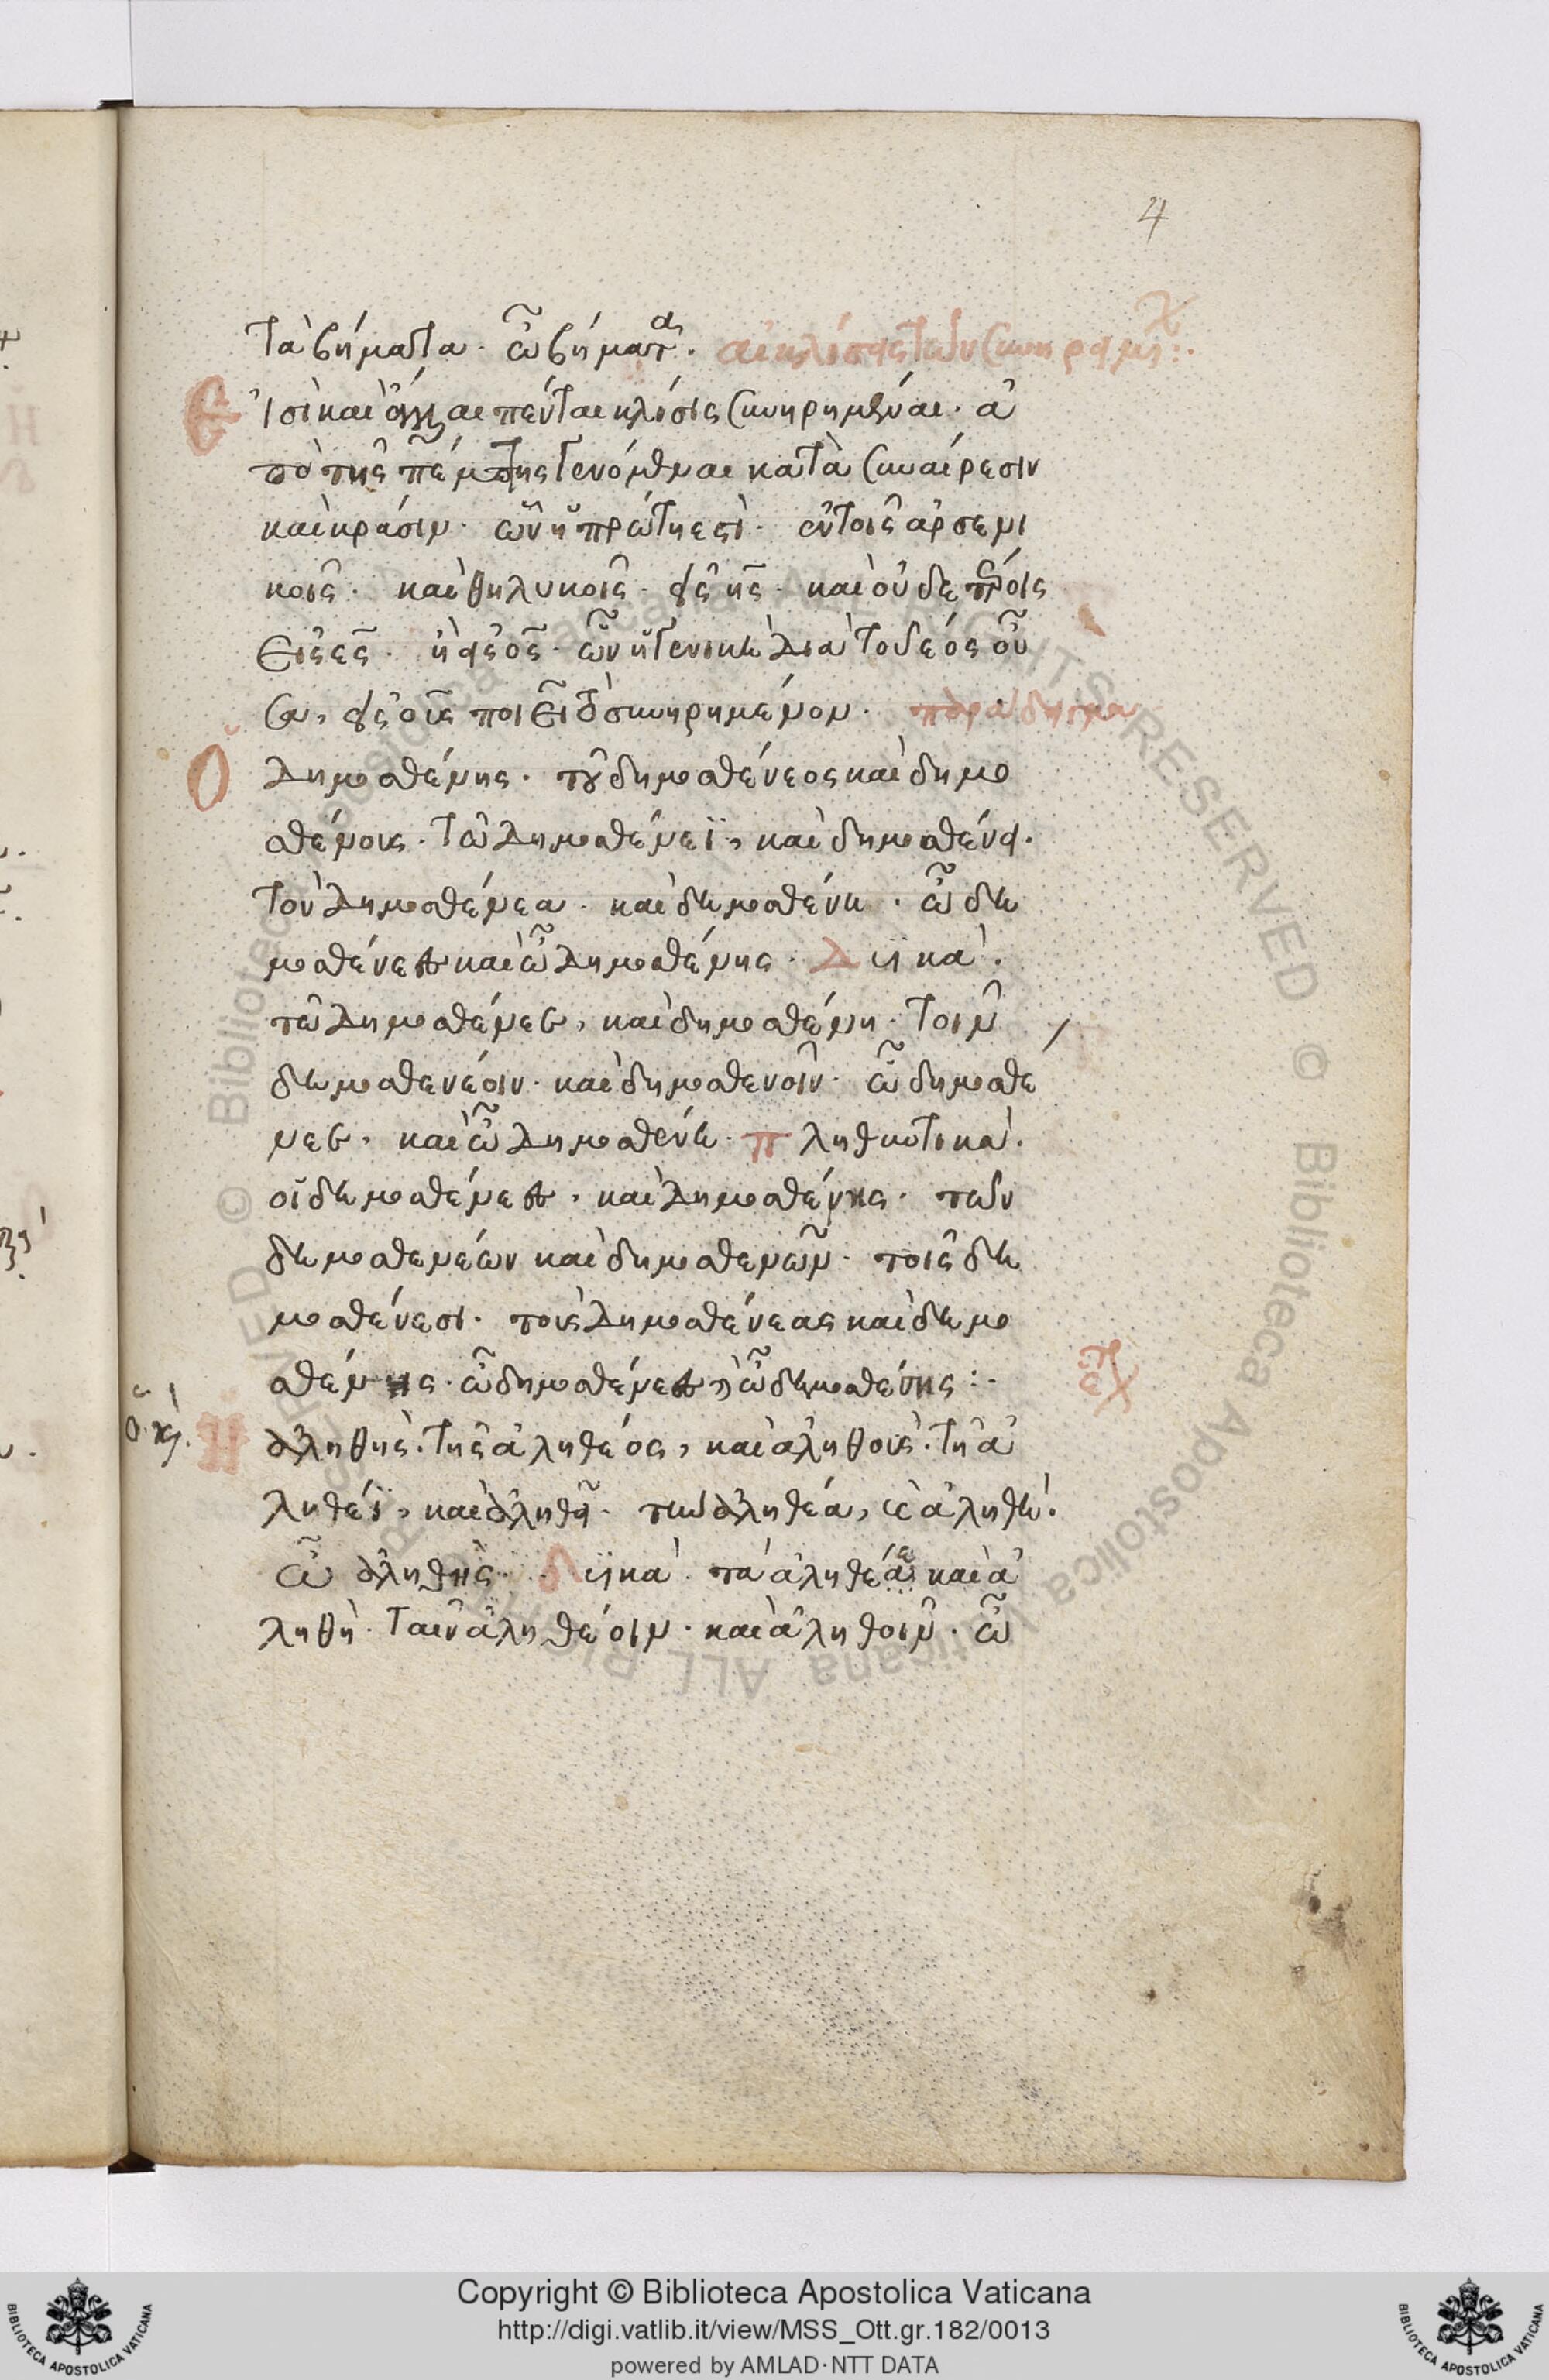 4
τὰ βήματα· ὦ βήματα. αἱ κλίσεις τῶν συνῃρημένων:·
Εἰσὶ καὶ ἄλλαι πέντε κλίσις συνῃρημέναι· ἀ
πὸ τῆς πέμπτης γενόμεναι κατὰ συναίρεσιν
καὶ κράσιν· ὧν ἡ πρώτη ἐστὶ· ἐν τοῖς ἀρσενι
κοῖς· καὶ θηλυκοῖς· εἰς ης· καὶ οὐδετέροις
εἰς ες· ἢ εἰς ος· ὧν ἡ γενικὴ διὰ τοῦ εος οὖ
σα, εἰς οις ποιεῖ τὸ συνῃρημένον· παράδειγμα
Ὁ Δημοσθένης· τοῦ δημοσθένεος καὶ δημο
σθένους· τῶ Δημοσθένεϊ, καὶ δημοσθένει·
τὸν Δημοσθένεα· καὶ δημοσθένη· ὦ δη
μόσθενες καὶ ὦ Δημοσθένης· Δυϊκά·
τὼ Δημοσθένεε, καὶ δημοσθένη· τοῖν
δημοσθενέοιν· καὶ δημοσθενοῖν· ὦ δημοσθέ
νεε, καὶ ὦ Δημοσθένη· πληθυντικά·
οἱ δημοσθένεες, καὶ Δημοσθένης· τῶν
δημοσθενέων καὶ δημοσθενῶν· τοῖς δη
μοσθένεσι· τοὺς Δημοσθένεας καὶ δημο
σθένης· ὦ δημοσθένεες, ὦ δημοσθένης:·
Ἡ ἀληθὴς· τῆς ἀληθέος, καὶ ἀληθοῦς· τῇ ἀ
ληθέϊ, καὶ ἀληθεῖ· τὴν ἀληθέα, καὶ ἀληθῆ·
ὦ ἀληθὴς· δυϊκά· τὰ ἀληθέε καὶ ἀ
ληθῆ· ταῖν ἀληθέοιν· καὶ ἀληθοῖν· ὦ
Copyright © Biblioteca Apostolica Vaticana
http://digi.vatlib.it/view/MSS_Ott.gr.182/0013
powered by AMLAD·NTT DATA